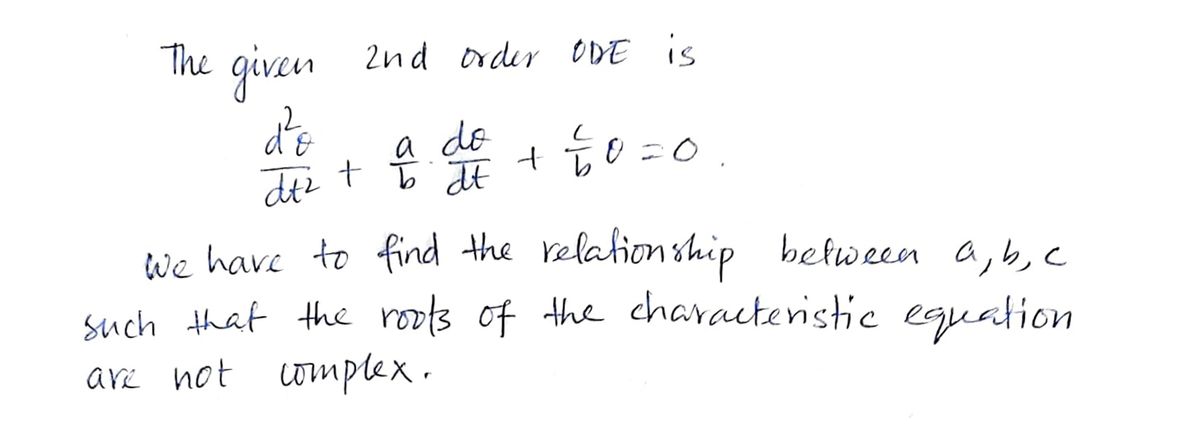 The given 2nd order ODE is
d²θ/dt² + a/b · dθ/dt + c/b θ = 0.
We have to find the relationship between a, b, c
such that the roots of the characteristic equation
are not complex.